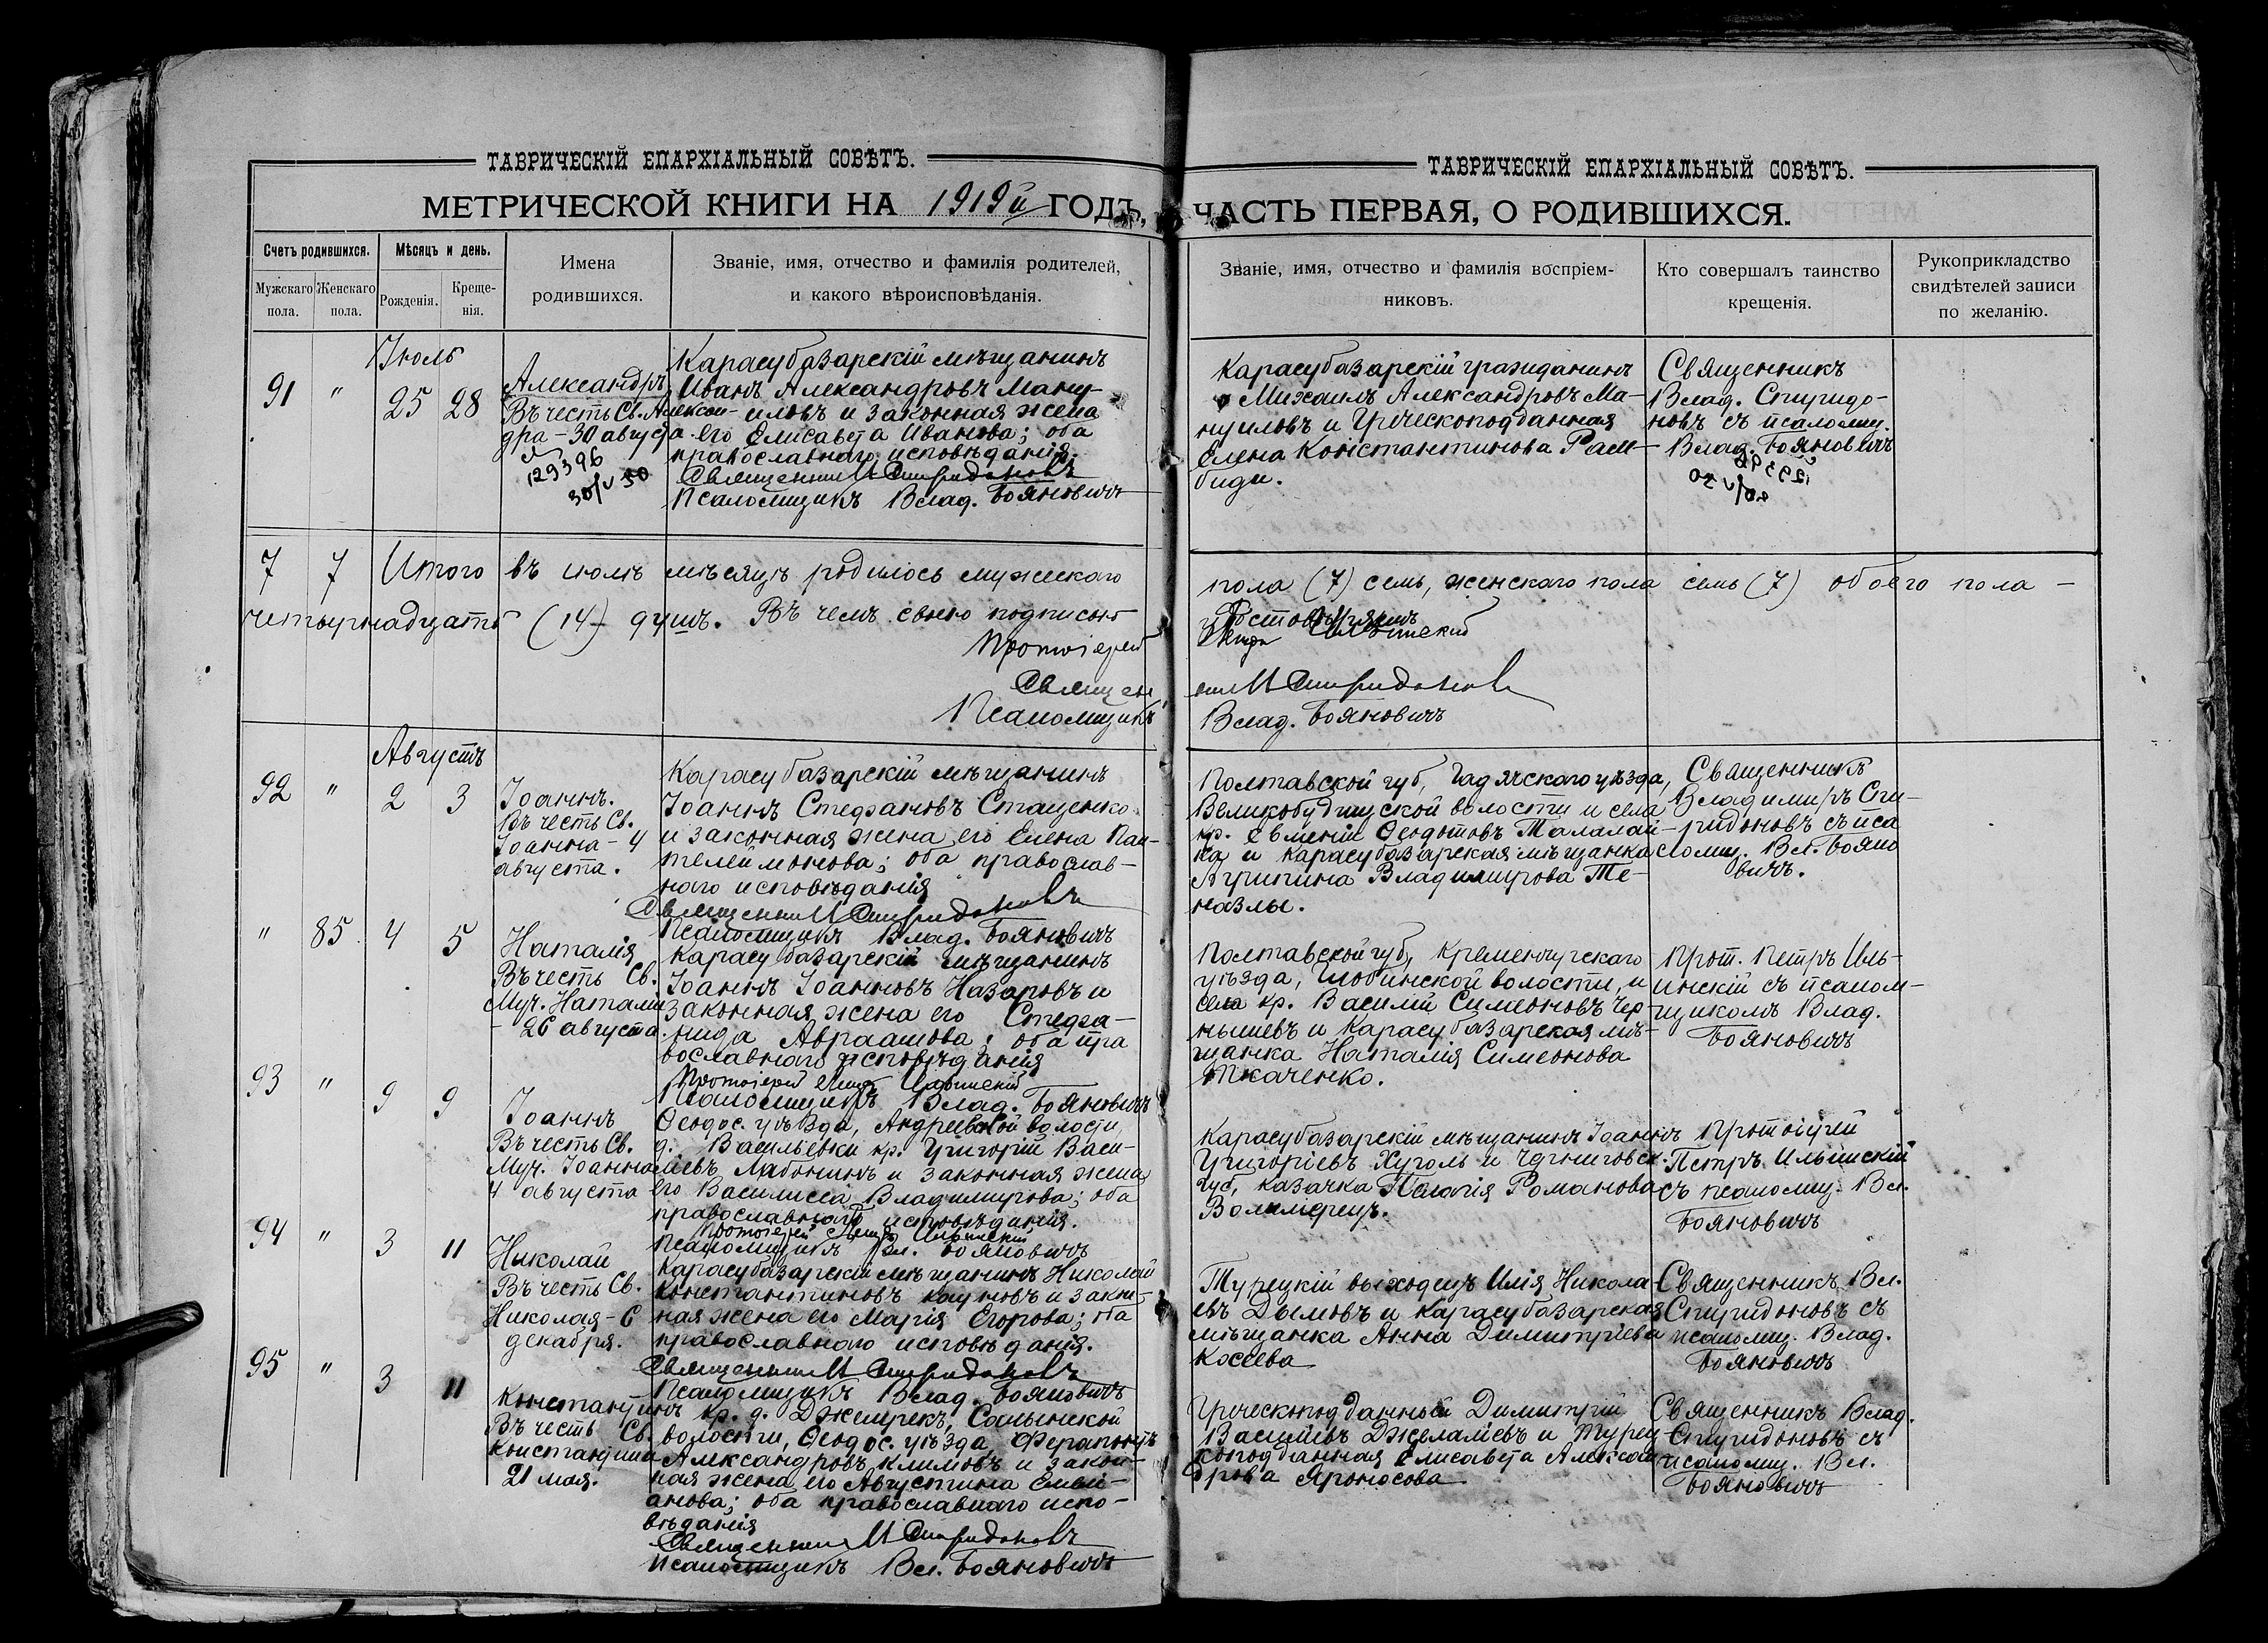 ТАВРИЧЕСКІЙ ЕПАРХІАЛЬНЫЙ СОВѢТЪ.
МЕТРИЧЕСКОЙ КНИГИ НА 1919й ГОДЪ,
Счетъ родившихся.
Мужскаго пола.
Женскаго пола.
Мѣсяцъ и день.
Рожденія.
Креще-
нія.
Имена
родившихся.
Званіе, имя, отчество и фамилія родителей,
и какого вѣроисповѣданія.
Іюль
91 " 25 28
Александръ
Въ честь Св. Алексан-
дра - 30 августа
129396
30/V 50
Карасубазарскій мѣщанинъ
Иванъ Александровъ Ману-
иловъ и законная жена
его Елисавета Иванова; оба
православнаго исповѣданія.
Священникъ В Спиридоновъ
Псаломщикъ Влад. Бояновичъ
7 7 Итого въ іюлѣ мѣсяцѣ родилось мужскаго
четырнадцать (14) душъ. Въ чемъ своею подписью
Протоіерей
Священ
Псаломщикъ
Августъ
92 " 2 3
Іоаннъ.
Въ честь Св.
Іоанна - 4
августа.
Карасубазарскій мѣщанинъ
Іоаннъ Стефановъ Стаценко
и законная жена его Елена Пан-
телеймонова; оба православ-
наго исповѣданія
Священникъ В Спиридоновъ
Псаломщикъ Влад. Бояновичъ
" 85 4 5
Наталія
Въ честь Св.
Муч. Наталіи
- 26 августа.
Карасубазарскій мѣщанинъ
Іоаннъ Іоанновъ Назаровъ и
законная жена его Стефа-
нида Авраамова; оба пра
вославнаго исповѣданія
Протоіерей Петръ Ильинскій
Псаломщикъ Влад. Бояновичъ
93 " 9 9
Іоаннъ
Въ честь Св.
Муч. Іоанна
4 августа
Ѳеодос. уѣзда, Андреевской волости,
д. Васильевки кр. Григорій Васи-
ліевъ Лабонинъ и законная жена
его Василиса Владимирова; оба
православнаго исповѣданія.
Протоіерей Петръ Ильинскій
Псаломщикъ Вл. Бояновичъ
94 " 3 11
Николай
Въ честь Св.
Николая - 6
декабря.
Карасубазарскій мѣщанинъ Николай
Константиновъ Кауновъ и закон-
ная жена его Марія Егорова; оба
православнаго исповѣданія.
Священникъ В Спиридоновъ
Псаломщикъ Влад. Бояновичъ
95 " 3 11
Константинъ
Въ честь Св.
Константина
21 мая.
кр. д. Джепрекъ, Салынской
волости, Ѳеодос. уѣзда, Ферапонтъ
Александровъ Климовъ и закон-
ная жена его Августина Емели-
анова; оба православнаго испо-
вѣданія
Священникъ В Спиридоновъ
Псаломщикъ Вл. Бояновичъ
ТАВРИЧЕСКІЙ ЕПАРХІАЛЬНЫЙ СОВѢТЪ.
ЧАСТЬ ПЕРВАЯ, О РОДИВШИХСЯ.
Званіе, имя, отчество и фамилія воспріем-
никовъ.
Кто совершалъ таинство
крещенія.
Рукоприкладство
свидѣтелей записи
по желанію.
Карасубазарскій гражданинъ
Михаилъ Александровъ Ма-
нуиловъ и Греческоподданная
Елена Константинова Рам-
биди.
Священникъ
Влад. Спиридо-
новъ съ псаломщ.
Влад. Бояновичъ
пола (7) семь, женскаго пола семь (7) обоего пола -
Петръ Ильинскій
В Спиридоновъ
Влад. Бояновичъ
Полтавской губ, Гадячскаго уѣзда,
Великобудищской волости и села
кр. Евменій Ѳеодотовъ Талалай-
ка и Карасубазарская мѣщанка
Агрипина Владимирова Те-
назлы.
Священникъ
Владимиръ Спи-
ридоновъ съ пса
ломщ. Вл. Бояно
вичъ.
Полтавской губ, Кременчугскаго
уѣзда, Глобинской волости, и
села кр. Василій Симеоновъ Чер-
нышевъ и Карасубазарская мѣ-
щанка Наталія Симеонова
Ткаченко.
Прот. Петръ Иль-
инскій съ псалом-
щикомъ Влад.
Бояновичъ
Карасубазарскій мѣщанинъ Іоаннъ
Григоріевъ Хуголь и Черниговск.
губ, казачка Пелагія Романова
Волимерецъ.
Протоіерей
Петръ Ильинскій
съ псаломщ. Вл.
Бояновичъ
Турецкій выходецъ Илія Никола-
евъ Дымовъ и Карасубазарская
мѣщанка Анна Димитріева
Косева
Священникъ Вл.
Спиридоновъ съ
псаломщ. Влад.
Бояновичъ
Греческоподданный Димитрій
Василіевъ Джеламіевъ и Турец-
коподданная Елисавета Алексан
дрова Яроносова
Священникъ Влад.
Спиридоновъ съ
псаломщ. Вл.
Бояновичъ